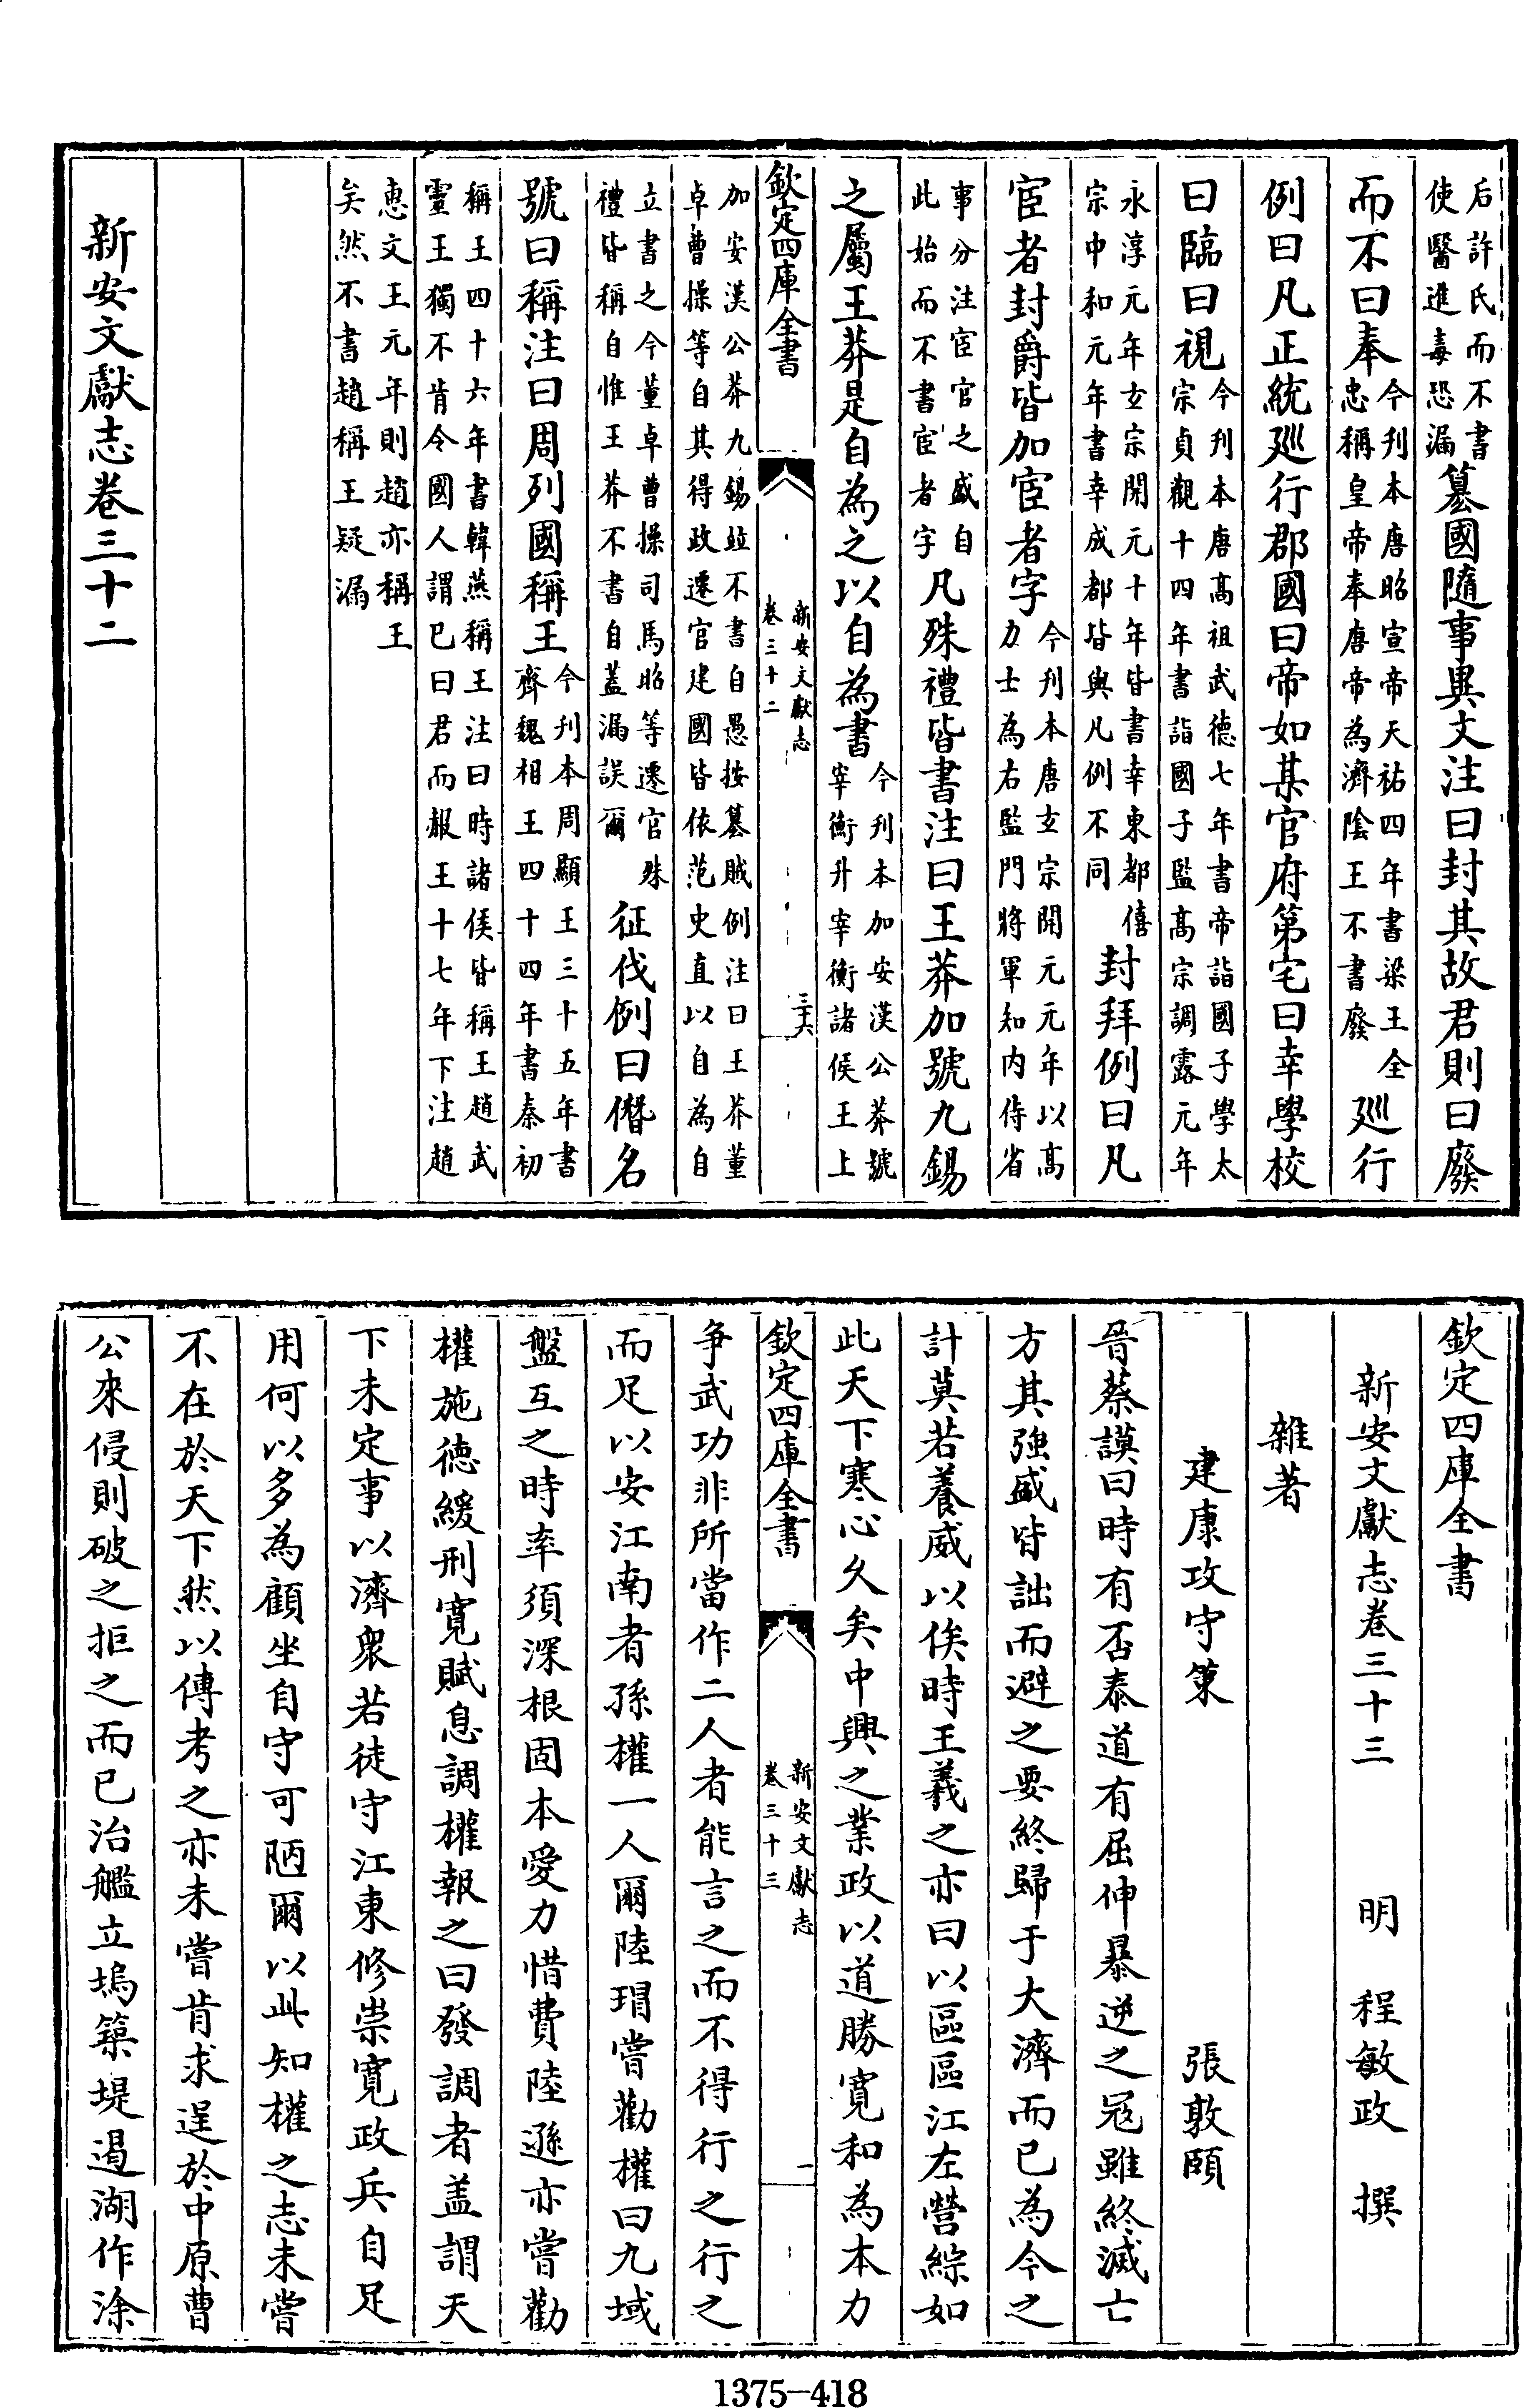 后許氏而不書
使醫進毒恐漏
篡國隨事異文注曰封其故君則曰廢
而不曰奉
今刋本唐昭宣帝天祐四年書梁王全
忠稱皇帝奉唐帝為濟陰王不書廢
廵行
例曰凡正統廵行郡國曰帝如某官府第宅曰幸學校
曰臨曰視
今刋本唐髙祖武德七年書帝詣國子學太
宗貞觀十四年書詣國子監髙宗調露元年
永淳元年玄宗開元十年皆書幸東都僖
宗中和元年書幸成都皆與凡例不同
封拜例曰凡
宦者封爵皆加宦者字
今刋本唐玄宗開元元年以髙
力士為右監門將軍知内侍省
事分注宦官之盛自
此始而不書宦者字
凡殊禮皆書注曰王莽加號九錫
之屬王莽是自為之以自為書
今刋本加安漢公莽號
宰衡升宰衡諸侯王上
欽定四庫全書
新安文獻志
卷三十二
三十六
加安漢公莽九錫竝不書自愚按簒賊例注曰王莽董
卓曹操等自其得政遷官建國皆依范史直以自為自
立書之今董卓曹操司馬昭等遷官殊
禮皆稱自惟王莽不書自蓋漏誤爾
征伐例曰僭名
號曰稱注曰周列國稱王
今刋本周顯王三十五年書
齊魏相王四十四年書秦初
稱王四十六年書韓燕稱王注曰時諸侯皆稱王趙武
靈王獨不肯令國人謂已曰君而赧王十七年下注趙
惠文王元年則趙亦稱王
矣然不書趙稱王疑漏
新安文獻志卷三十二
欽定四庫全書
新安文獻志卷三十三 明 程敏政 撰
雜著
建康攻守策 張敦頤
晉蔡謨曰時有否泰道有屈伸暴逆之冦雖終滅亡
方其強盛皆詘而避之要終歸于大濟而已為今之
計莫若養威以俟時王羲之亦曰以區區江左營綜如
此天下寒心久矣中興之業政以道勝寛和為本力
欽定四庫全書
新安文獻志
卷三十三
一
爭武功非所當作二人者能言之而不得行之行之
而足以安江南者孫權一人爾陸瑁嘗勸權曰九域
盤互之時率須深根固本愛力惜費陸遜亦嘗勸
權施德緩刑寛賦息調權報之曰發調者葢謂天
下未定事以濟衆若徒守江東修崇寛政兵自足
用何以多為顧坐自守可陋爾以此知權之志未嘗
不在於天下然以傳考之亦未嘗肯求逞於中原曹
公來侵則破之拒之而已治艦立塢築堤遏湖作涂
1375-418